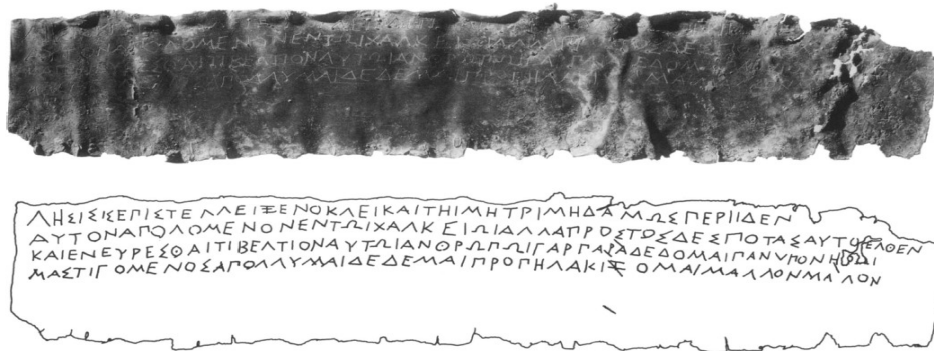 ΛΗΣΙΣΙΣΕΠΙΣΤΕΛΛΕΙΞΕΝΟΚΛΕΙΚΑΙΤΗΙΜΗΤΡΙΜΗΔΑΜΩΣΠΕΡΙΙΔΕΝ
ΑΥΤΟΝΑΠΟΛΟΜΕΝΟΝΕΝΤΩΙΧΑΛΚΕΙΩΙΑΛΛΑΠΡΟΣΤΟΣΔΕΣΠΟΤΑΣΑΥΤΟΕΛΘΕΝ
ΚΑΙΕΝΕΥΡΕΣΘΑΙΤΙΒΕΛΤΙΟΝΑΥΤΩΙΑΝΘΡΩΠΩΙΓΑΡΠΑΡΑΔΕΔΟΜΑΙΠΑΝΥΠΟΝΗΡΩΙ
ΜΑΣΤΙΓΟΜΕΝΟΣΑΠΟΛΛΥΜΑΙΔΕΔΕΜΑΙΠΡΟΠΗΛΑΚΙΖΟΜΑΙΜΑΛΛΟΝΜΑΛΟΝ